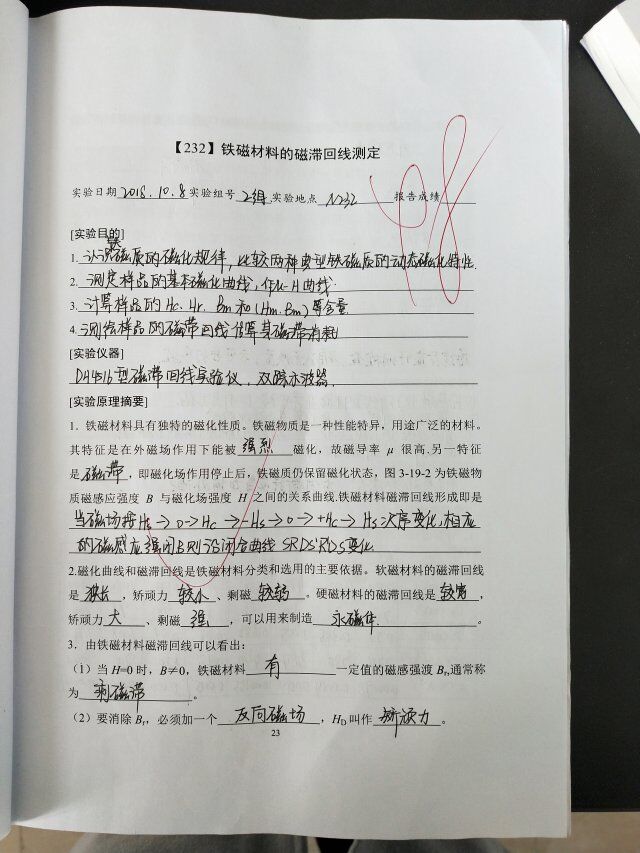 【232】铁磁材料的磁滞回线测定
98
实验日期 2018.10.8 实验组号 2组 实验地点 N232 报告成绩
[实验目的]
1. 认识铁磁质的磁化规律，比较两种典型铁磁质的动态磁化特性.
2. 测定样品的基本磁化曲线，作μ-H曲线.
3. 计算样品的Hc、Hr、Bm和(Hm.Bm)等含量.
4. 测绘样品的磁滞回线估算其磁滞消耗
[实验仪器]
DH4516型磁滞回线实验仪，双踪示波器.
[实验原理摘要]
1．铁磁材料具有独特的磁化性质。铁磁物质是一种性能特异，用途广泛的材料。
其特征是在外磁场作用下能被 强烈 磁化，故磁导率 μ 很高.另一特征
是 磁滞 ，即磁化场作用停止后，铁磁质仍保留磁化状态，图 3-19-2 为铁磁物
质磁感应强度 B 与磁化场强度 H 之间的关系曲线.铁磁材料磁滞回线形成即是
当磁场按Hs→0→Hc→-Hs→0→+Hc→Hs次序变化,相应
的磁感应强闭B则沿闭合曲线SRDS'R'D'S变化.
2.磁化曲线和磁滞回线是铁磁材料分类和选用的主要依据。软磁材料的磁滞回线
是 狭长 ，矫顽力 较小 、剩磁 较弱 。硬磁材料的磁滞回线是 较宽 ，
矫顽力 大 、剩磁 强 ，可以用来制造 永磁体. 。
3．由铁磁材料磁滞回线可以看出：
（1）当 H=0 时，B≠0，铁磁材料 有 一定值的磁感强渡 Br,通常称
为 剩磁滞 。
（2）要消除 Br，必须加一个 反向磁场 ，HD 叫作 矫顽力 。
23